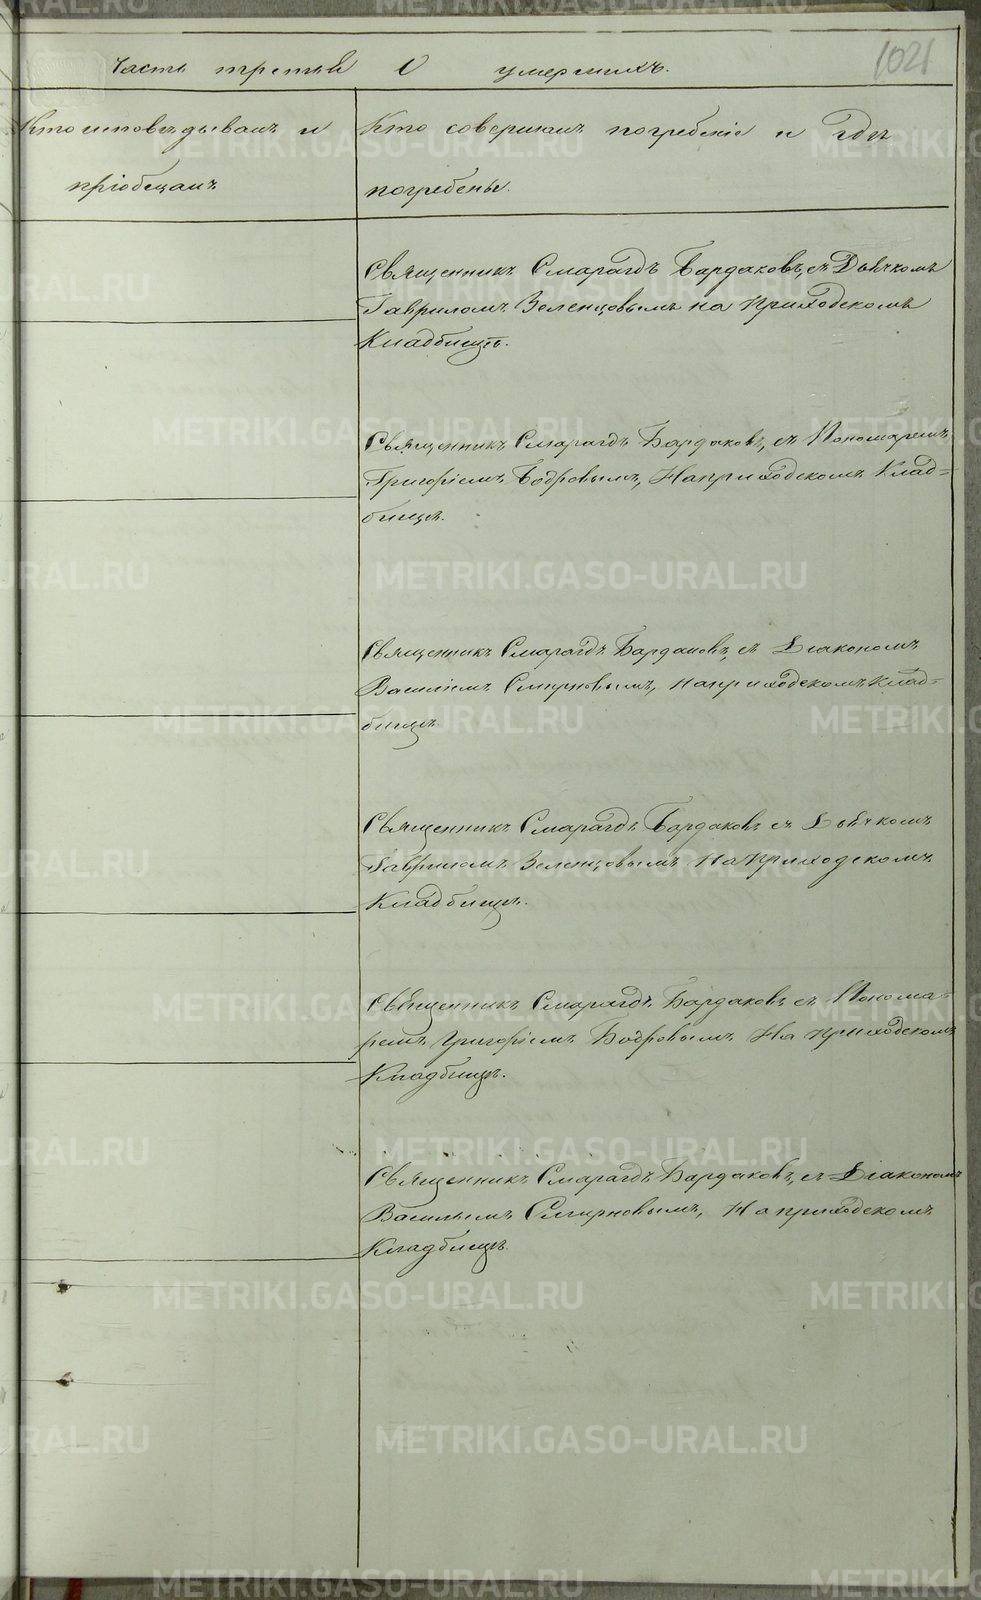 Часть третья О умершихъ.
1021
Кто исповѣдывалъ и
пріобщалъ
Кто совершалъ погребеніе и гдѣ
погребены.
Священникъ Смарагдъ Бардаковъ, съ Дьячкомъ
Гавриломъ Зеленцовымъ на Приходскомъ
Кладбищѣ.
Священникъ Смарагдъ Бардаковъ, съ Пономаремъ
Григоріемъ Бодровымъ, На приходскомъ Клад=
бищѣ.
Священникъ Смарагдъ Бардаковъ, съ Діакономъ
Василіемъ Смирновымъ, На приходскомъ Клад=
бищѣ.
Священникъ Смарагдъ Бардаковъ съ Дьячкомъ
Гавриломъ Зеленцовымъ На Приходскомъ
Кладбищѣ.
Священникъ Смарагдъ Бардаковъ съ Понома=
ремъ Григоріемъ Бодровымъ На приходскомъ
Кладбищѣ.
Священникъ Смарагдъ Бардаковъ, съ Діакономъ
Васильемъ Смирновымъ, На приходскомъ
Кладбищѣ.
METRIKI.GASO-URAL.RU